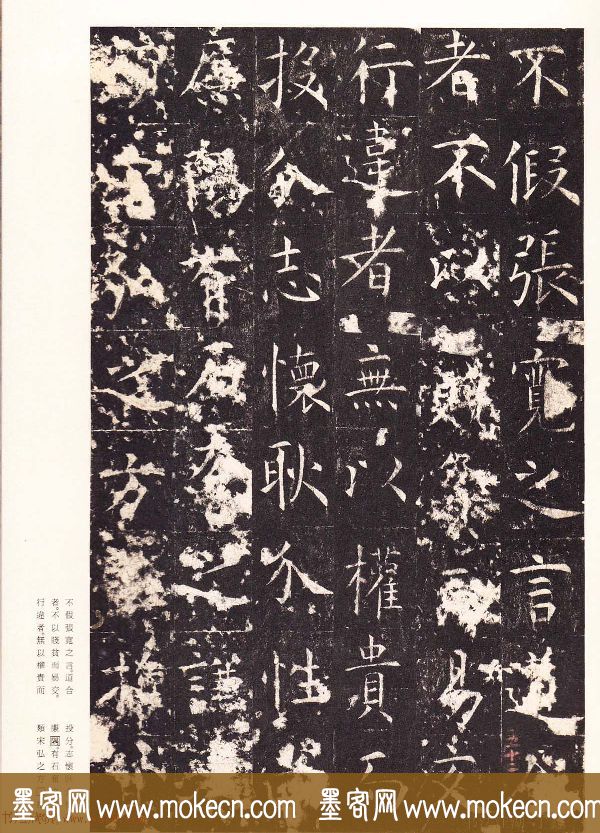 不假張寬之言道合
者不以賤貧而易交
行違者無以權貴而
投分志懷耿介性
廉 有石奢之謹
類宋弘之方
不假張寬之言。道合
者。不以賤貧而易交。
行違者。無以權貴而
投分。志懷
廉 有石
類宋弘之方
五十三
墨客网 www.mokecn.com 墨客网 www.mokecn.com